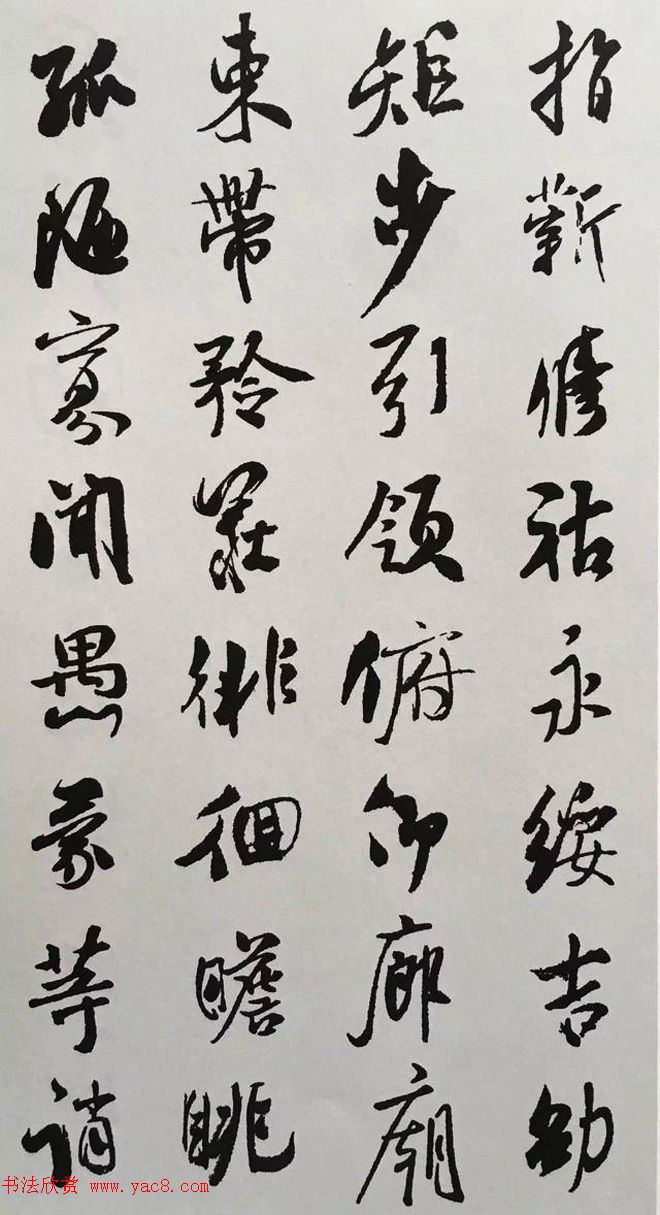 指薪修祜永綏吉劭
矩步引領俯仰廊廟
束帶矜莊徘徊瞻眺
孤陋寡聞愚蒙等誚
书法欣赏 www.yac8.com